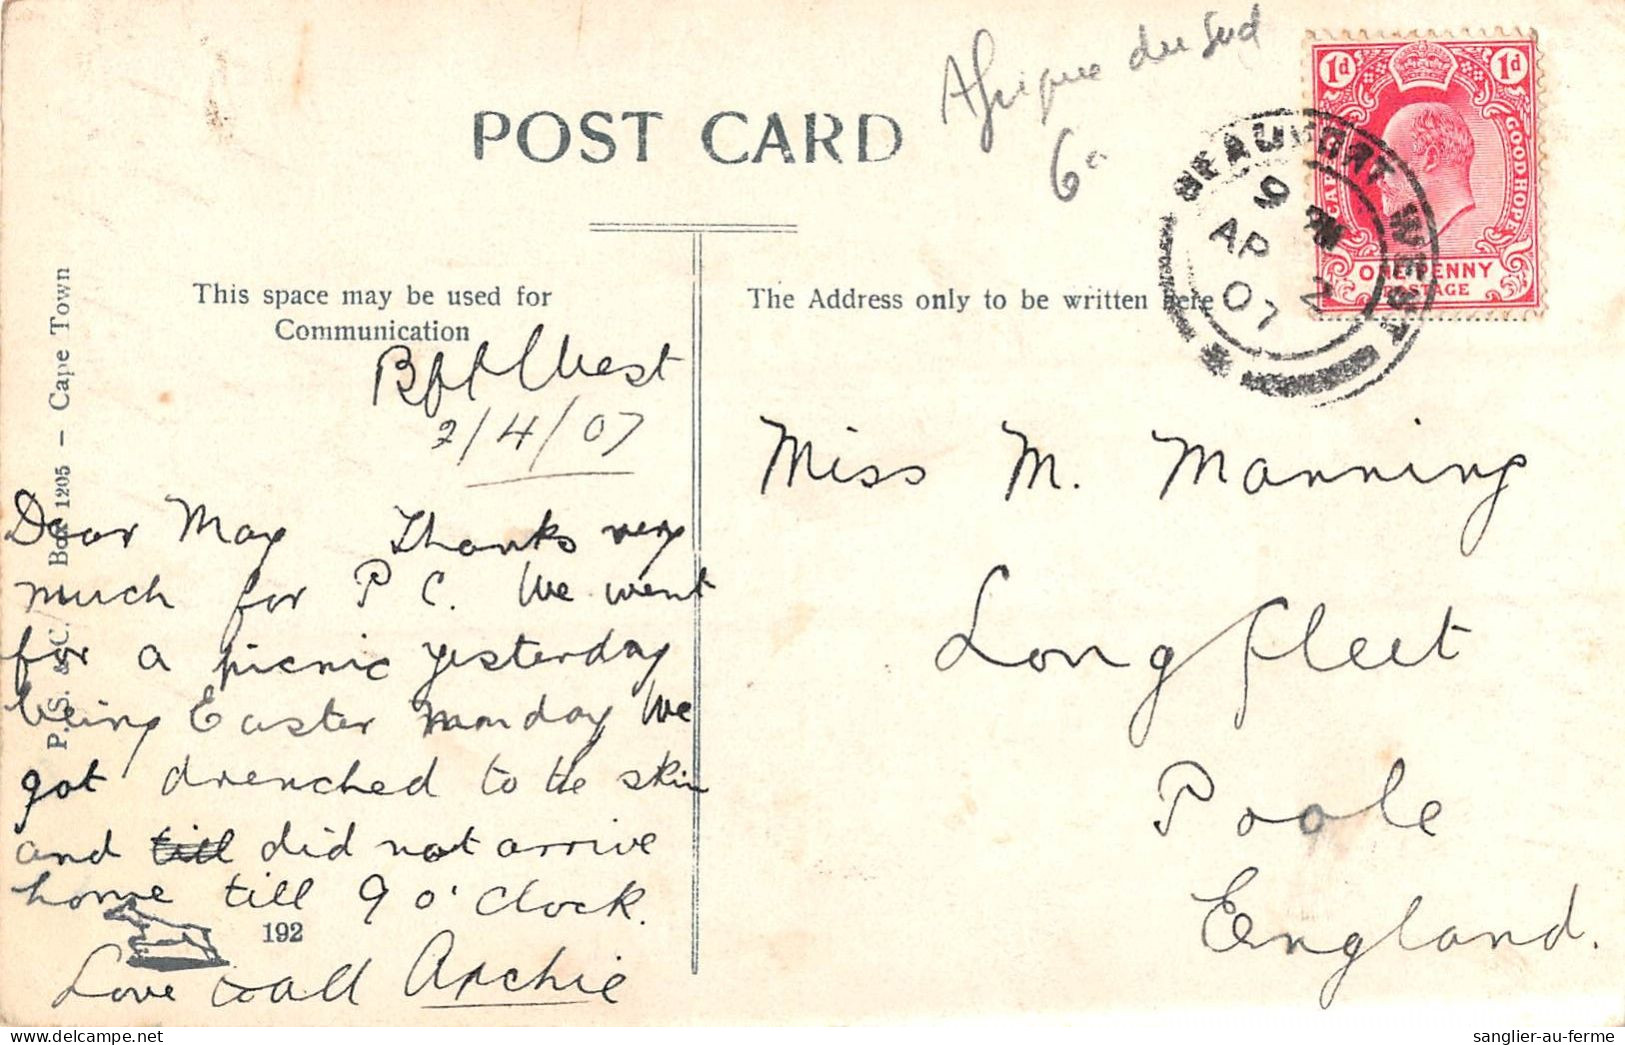 Afrique du Sud
6
POST CARD
1d 1d
GOOD HOPE
ONE PENNY
POSTAGE
BEAUFORT WEST
9 PM
AP 2
07
This space may be used for
Communication
The Address only to be written here
P. S. & C. Box 1205 – Cape Town
Bft West
2/4/07
Dear May Thanks very
much for P C. We went
for a picnic yesterday
being Easter Monday We
got drenched to the skin
and till did not arrive
home till 9 o'clock.
192
Love to all Archie
Miss M. Manning
Longfleet
Poole
England.
sanglier-au-ferme